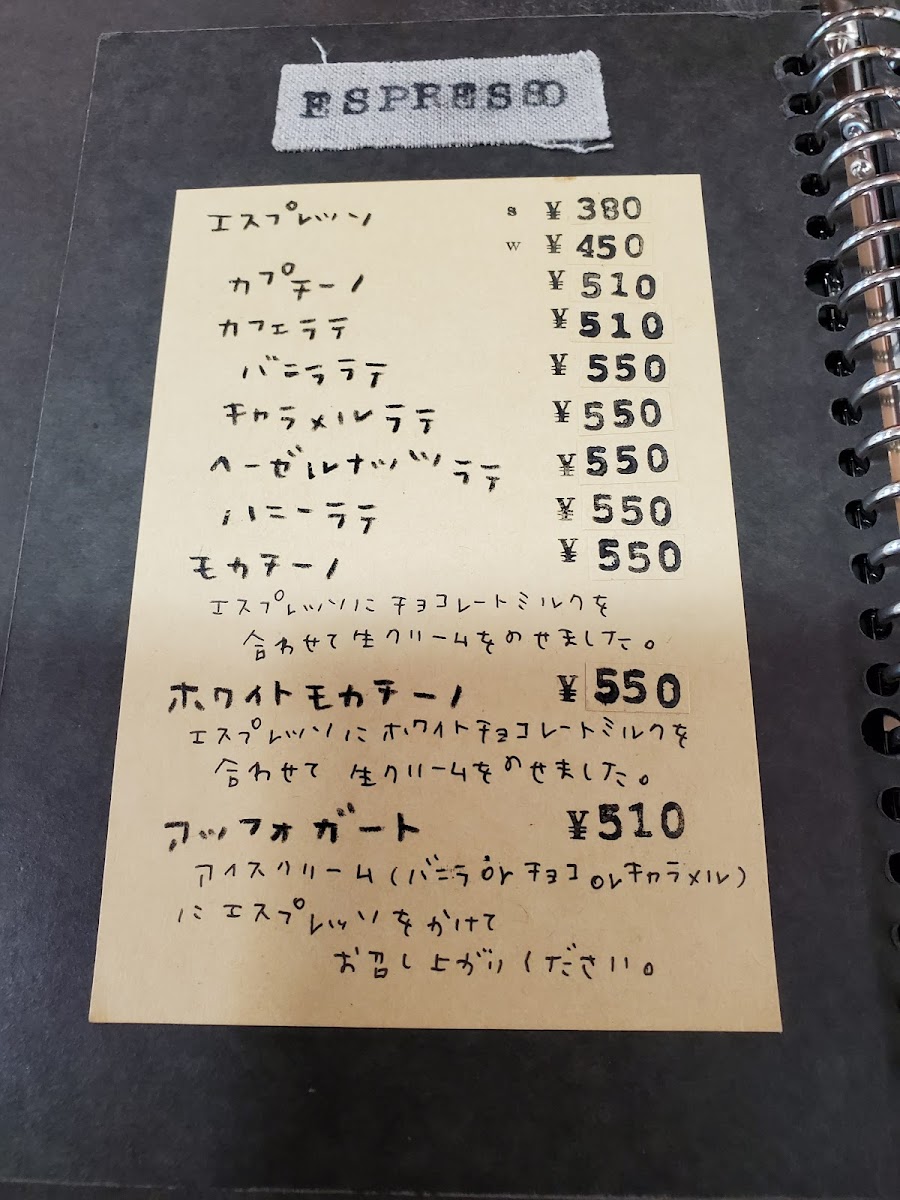 ESPRESSO
エスプレッソ s ¥ 380
w ¥ 450
カプチーノ ¥ 510
カフェラテ ¥ 510
バニララテ ¥ 550
キャラメルラテ ¥ 550
ヘーゼルナッツラテ ¥ 550
ハニーラテ ¥ 550
モカチーノ ¥ 550
エスプレッソにチョコレートミルクを
合わせて生クリームをのせました。
ホワイトモカチーノ ¥ 550
エスプレッソにホワイトチョコレートミルクを
合わせて生クリームをのせました。
アッフォガート ¥510
アイスクリーム(バニラ or チョコ or キャラメル)
にエスプレッソをかけて
お召し上がりください。